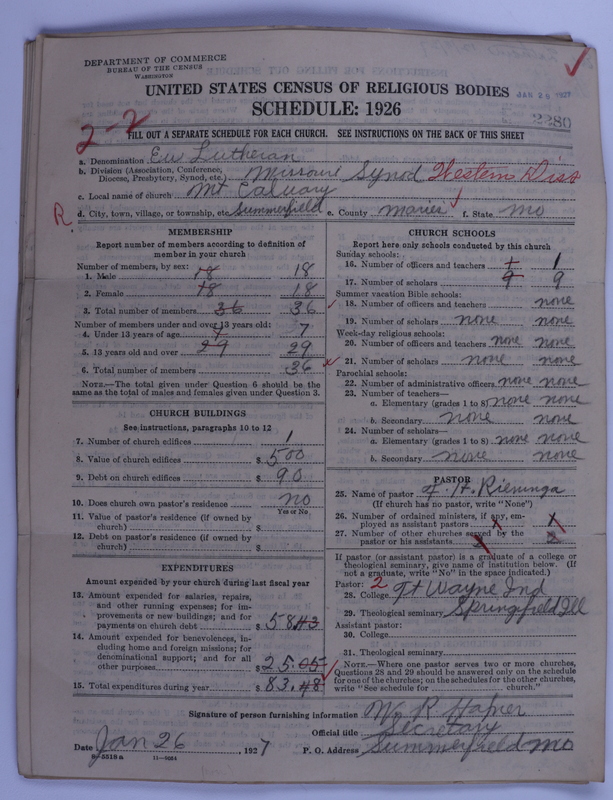 DEPARTMENT OF COMMERCE
BUREAU OF THE CENSUS
WASHINGTON
UNITED STATES CENSUS OF RELIGIOUS BODIES
JAN 29 1927
SCHEDULE: 1926
2280
2-2
FILL OUT A SEPARATE SCHEDULE FOR EACH CHURCH. SEE INSTRUCTIONS ON THE BACK OF THIS SHEET
a. Denomination Ev Lutheran
b. Division (Association, Conference, Diocese, Presbytery, Synod, etc.) Missouri Synod Western Dist
c. Local name of church Mt Calvary
R.
d. City, town, village, or township, etc. Summerfield e. County Maries f. State Mo
MEMBERSHIP
Report number of members according to definition of
member in your church
Number of members, by sex:
1. Male 18 18
2. Female 18 18
3. Total number of members 36 36
Number of members under and over 13 years old:
4. Under 13 years of age 7 7
5. 13 years old and over 29 29
6. Total number of members 36
NOTE.—The total given under Question 6 should be the
same as the total of males and females given under Question 3.
CHURCH BUILDINGS
See instructions, paragraphs 10 to 12
7. Number of church edifices 1
8. Value of church edifices $ 500
9. Debt on church edifices $ 90
10. Does church own pastor's residence no
Yes or No
11. Value of pastor's residence (if owned by
church) $
12. Debt on pastor's residence (if owned by
church) $
EXPENDITURES
Amount expended by your church during last fiscal year
13. Amount expended for salaries, repairs,
and other running expenses; for im-
provements or new buildings; and for
payments on church debt $ 58.43
14. Amount expended for benevolences, in-
cluding home and foreign missions; for
denominational support; and for all
other purposes $ 25.05
15. Total expenditures during year $ 83.48
CHURCH SCHOOLS
Report here only schools conducted by this church
Sunday schools:
16. Number of officers and teachers 1 1
17. Number of scholars 9 9
Summer vacation Bible schools:
18. Number of officers and teachers none
19. Number of scholars none none
Week-day religious schools:
20. Number of officers and teachers none none
21. Number of scholars none none
Parochial schools:
22. Number of administrative officers none none
23. Number of teachers—
a. Elementary (grades 1 to 8) none none
b. Secondary none none
24. Number of scholars—
a. Elementary (grades 1 to 8) none none
b. Secondary none none
PASTOR
25. Name of pastor F. H. Rieninga
(If church has no pastor, write "None")
26. Number of ordained ministers, if any, em-
ployed as assistant pastors 1 1
27. Number of other churches served by the
pastor or his assistants 2 2
If pastor (or assistant pastor) is a graduate of a college or
theological seminary, give name of institution below. (If
not a graduate, write "No" in the space indicated.)
Pastor: 2
28. College Ft Wayne Ind
29. Theological seminary Springfield Ill
Assistant pastor:
30. College
31. Theological seminary
NOTE.—Where one pastor serves two or more churches,
Questions 28 and 29 should be answered only on the schedule
for one of the churches; on the schedules for the other churches,
write "See schedule for church."
Signature of person furnishing information Wm R Hafner
Official title Secretary
Date Jan 26, 1927 P. O. Address Summerfield Mo
8-5518a 11-9034